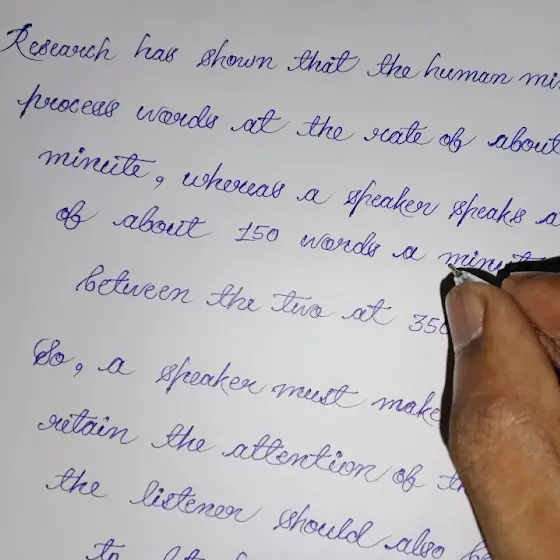 Research has shown that the human
process words at the rate of about
minute, whereas a speaker speaks a
of about 150 words a minute
between the two at 350
So, a speaker must make
retain the attention of
the listener should also
to